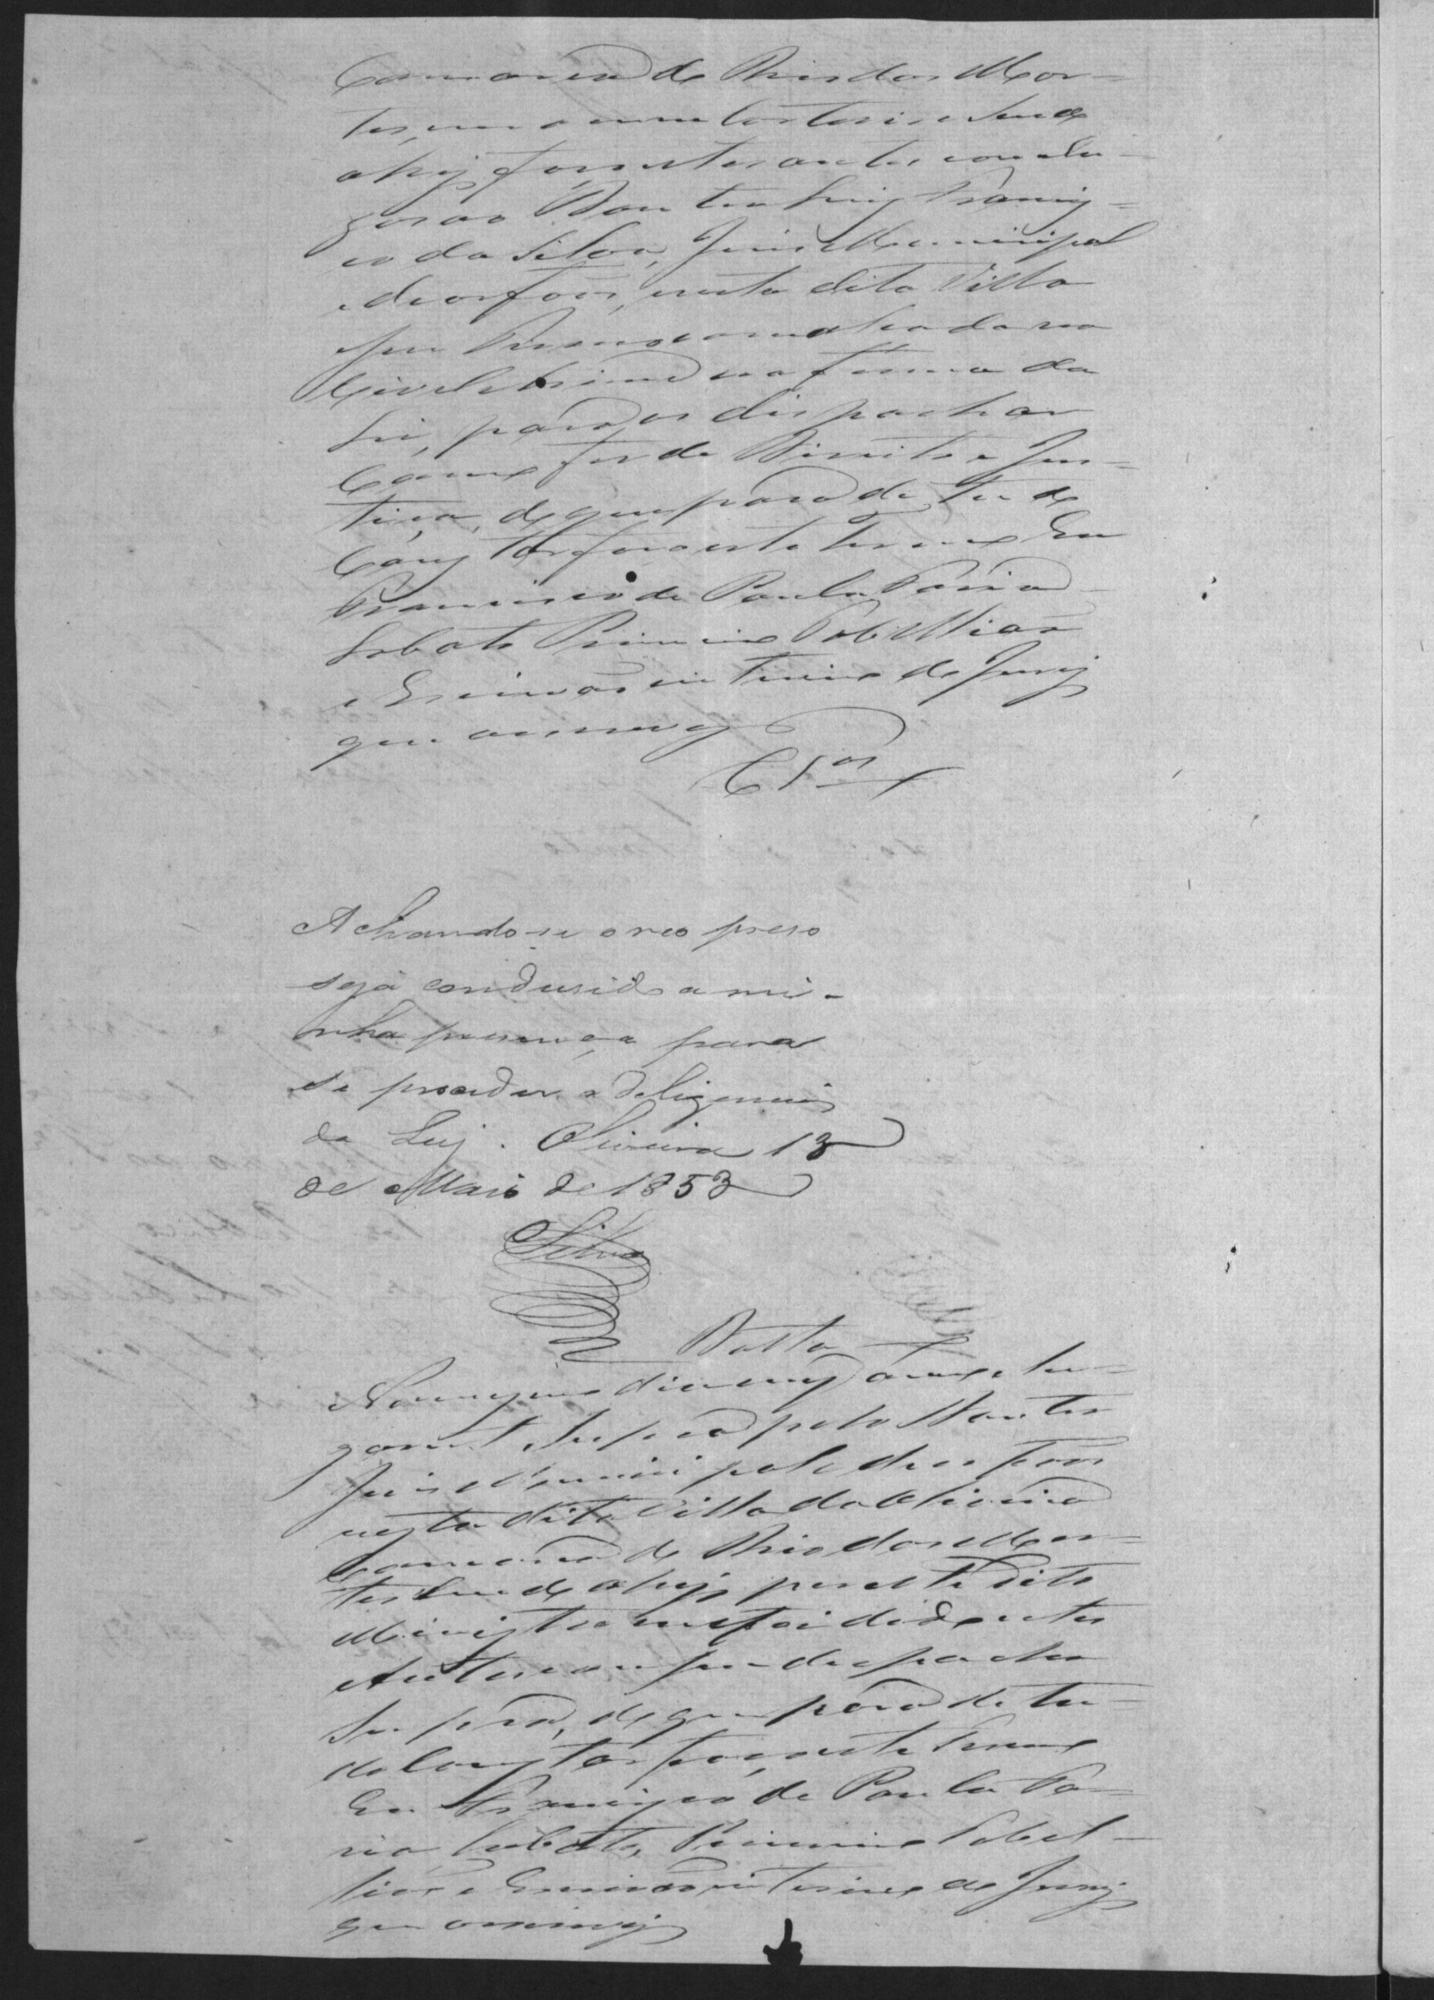 Comarca do Rio das Mor-
tes, em o meu Cartorio e Sendo
ahy faço estes autos conclu-
zos ao Doutor Luiz Franis-
co da Silva, Juiz Municipal
e de orfãos, nesta dita Villa
Civel e Crime na forma da
Lei, para os dispachar
como for de Direito e Jus-
tiça, de que para de tudo
Constar faço este Termo Eu
Francisco de Paula Faria
Lobato Primeiro Tabellião
e Escrivão interino do Jury
que escrevy
Clos
Achando-se o reo preso
seja condusido a mi-
nha presença para
se proceder a deligencia
da Ley. Oliveira 13
de Maio de 1853
Silva
Datta
No mesmo dia mez anno e lu-
gar et Supra pelo Doutor
Juiz Municipal e de orfãos
nesta dita Villa da Oliveira
Comarca do Rio das Mor-
tes Sendo ahy por este dito
Ministro me foi dado estes
Autos com seu despacho
Supra, de que para de tu-
do Constar faço este Termo
Eu Francisco de Paula Fa-
ria Lobato, Primeiro Tabel-
lião e Escrivão interino do Jury
que escrevy